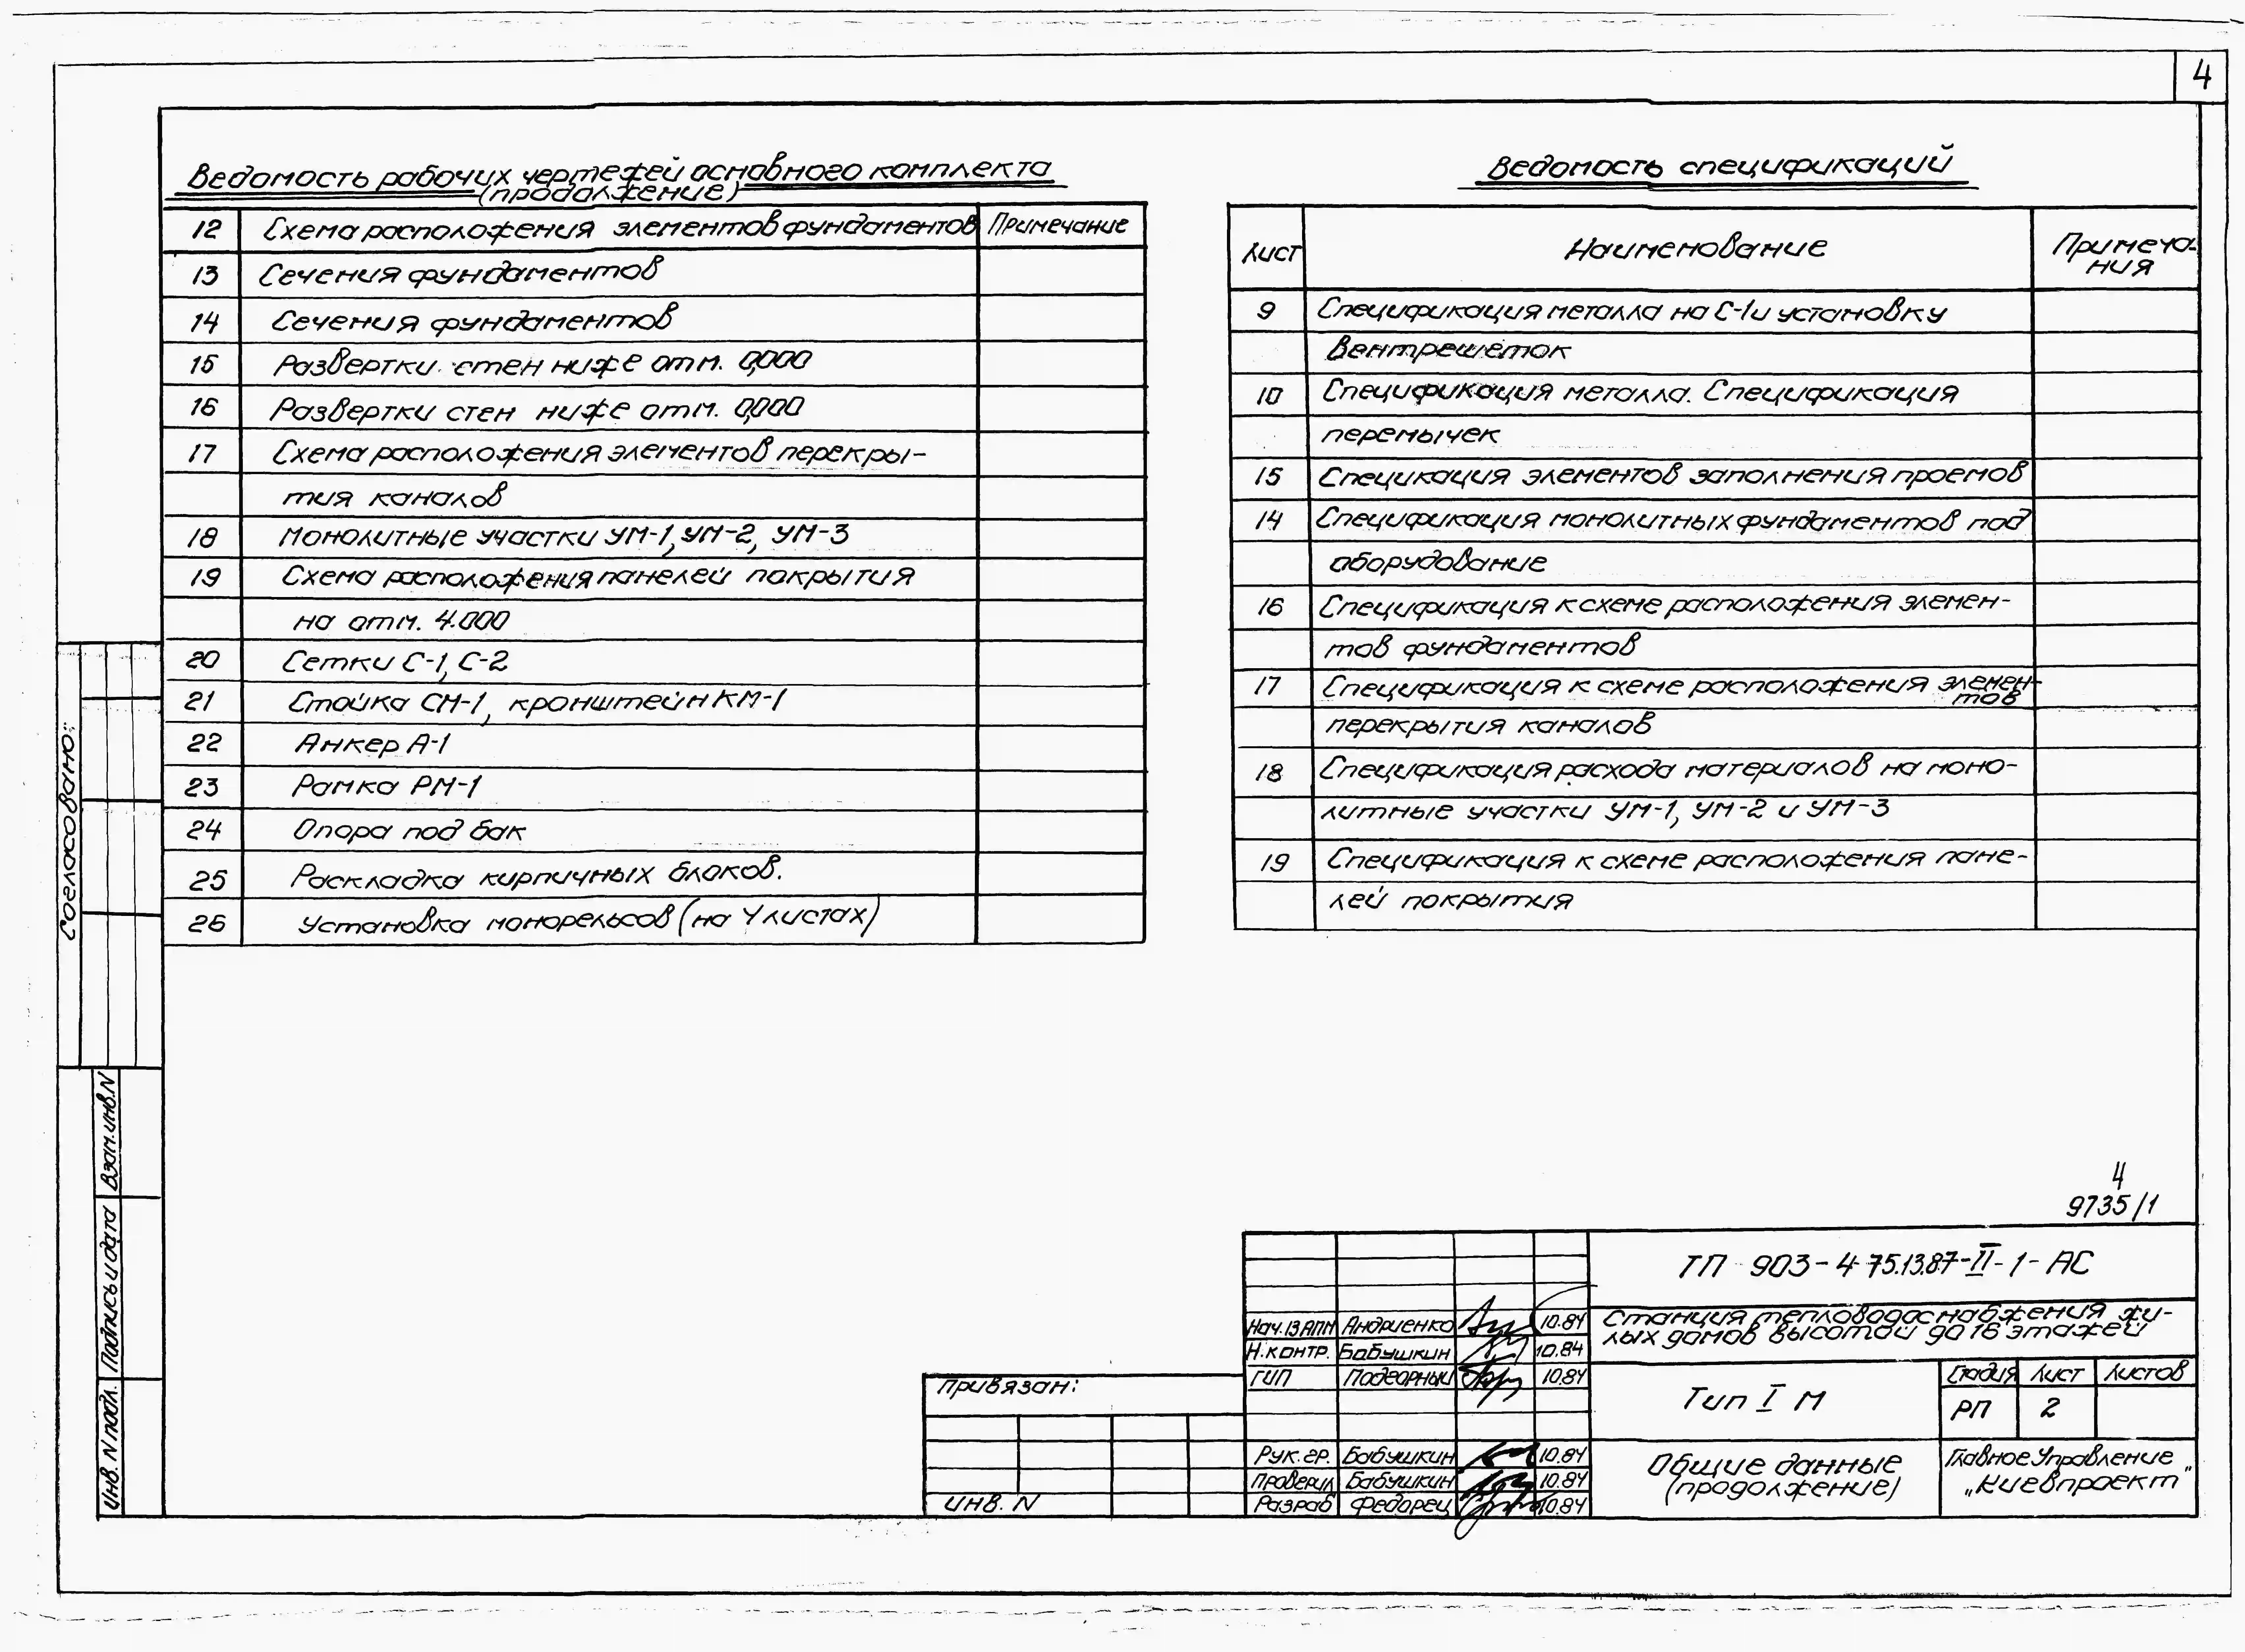 4
Ведомость рабочих чертежей основного комплекта
(продолжение)
12 Схема расположения элементов фундаментов Примечание
13 Сечения фундаментов
14 Сечения фундаментов
15 Развертки стен ниже отм. 0,000
16 Развертки стен ниже отм. 0,000
17 Схема расположения элементов перекры-
тия каналов
18 Монолитные участки УМ-1, УМ-2, УМ-3
19 Схема расположения панелей покрытия
на отм. 4.000
20 Сетки С-1, С-2
21 Стойка СМ-1, кронштейн КМ-1
22 Анкер А-1
23 Рамка РМ-1
24 Опора под бак
25 Раскладка кирпичных блоков.
26 Установка монорельсов (на 4 листах)
Ведомость спецификаций
Лист Наименование Примеча-
ния
9 Спецификация металла на С-1 и установку
вентрешёток
10 Спецификация металла. Спецификация
перемычек
15 Специкация элементов заполнения проемов
14 Спецификация монолитных фундаментов под
оборудование
16 Спецификация к схеме расположения элемен-
тов фундаментов
17 Спецификация к схеме расположения элемен-
тов
перекрытия каналов
18 Спецификация расхода материалов на моно-
литные участки УМ-1, УМ-2 и УМ-3
19 Спецификация к схеме расположения пане-
лей покрытия
Согласовано:
Взам. инв. N
Подпись и дата
Инв. N подл.
4
9735/1
ТП 903-4-75.13.87-II-1-АС
Станция тепловодоснабжения жи-
лых домов высотой до 16 этажей
Нач. 13 АПМ Андриенко 10.84
Н.контр. Бабушкин 10.84
ГИП Подгорный 10.84
Рук. гр. Бабушкин 10.84
Проверил Бабушкин 10.84
Разраб Федорец 10.84
Тип I М
Стадия Лист Листов
РП 2
Общие данные
(продолжение)
Главное Управление
„Киевпроект"
Привязан:
Инв. N